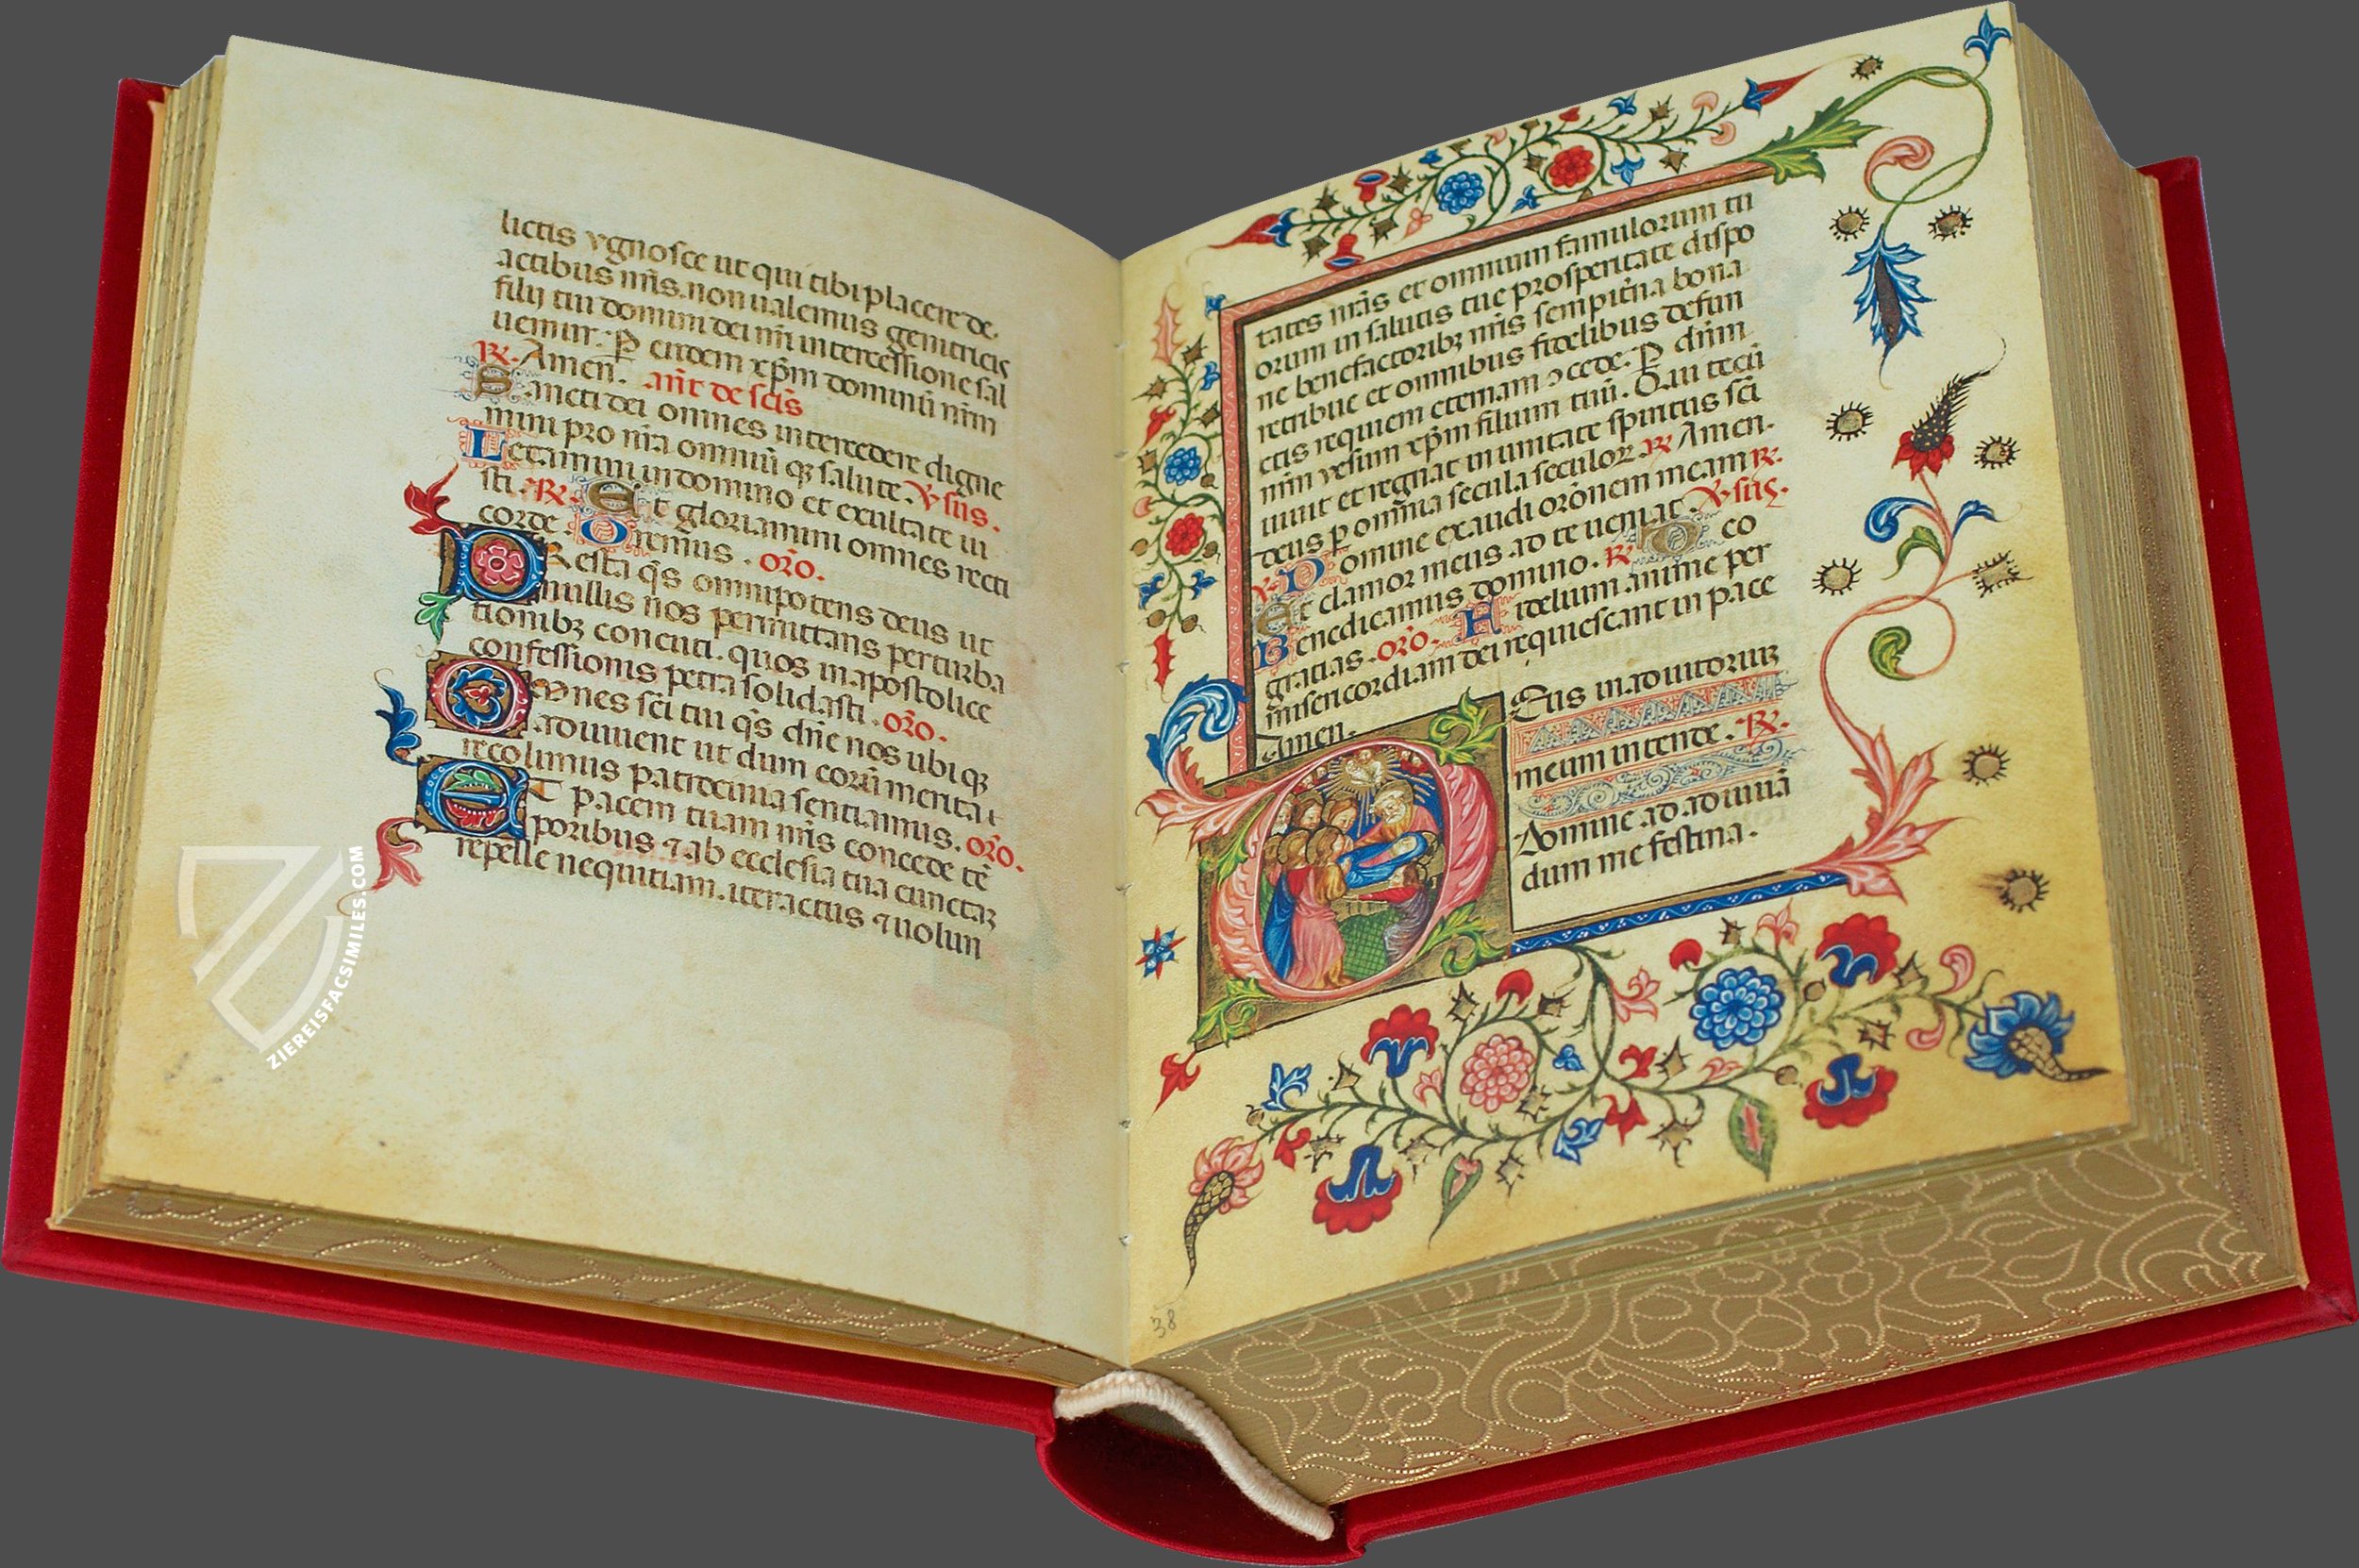 lictis ygnosce ut qui tibi placere de
actibus nr̄is. non ualemus genitricis
filij tui domini dei nr̄i intercessione sal
uemur. P eudem xp̄m dominū nr̄m
R. Amen. an̄t de sc̄is
Sancti dei omnes intercedere digne
mini pro nr̄a omniū qꝫ salute. V̄sus.
Letamini in domino et exultate iu
sti. R. Et gloriamini omnes recti
corde. Oremus. or̄o.
PResta qs̄ omnipotens deus ut
nullis nos permittans perturba
tionibꝫ concuti. quos in apostolice
confessionis petra solidasti. or̄o.
OMnes sc̄i tui qs̄ dn̄e nos ubiqꝫ
adiuuent ut dum corū merita r
recolimus patrocinia sentiamus. or̄o.
ET pacem tuam nr̄is concede tē
poribus ⁊ ab ecclesia tua cunctaꝫ
repelle nequitiam. iter actus ⁊ uolun
tates nr̄as et omnium famulorum tu
orum in salutis tue prosperitate dispo
ne benefactoribꝫ nr̄is sempit̄na bona
retribue et omnibus fidelibus defun
ctis requiem eternam ɔcede. P dn̄m
nr̄m yesum xp̄m filium tuū. Qui tecū
uiuit et regnat in unitate spiritus sc̄i
deus p̱ omnia secula seculoꝝ. R Amen.
V. Domine exaudi orōnem meam R.
Et clamor meus ad te ueniat. V̄sus.
Benedicamus domino. R. Deo
gratias. or̄o. Fidelium anime per
misericordiam dei requiescant in pace
Amen.
Deus in adiutorium
meum intende. R.
Domine ad adiuuā
dum me festina.
38
ZIEREISFACSIMILES.COM